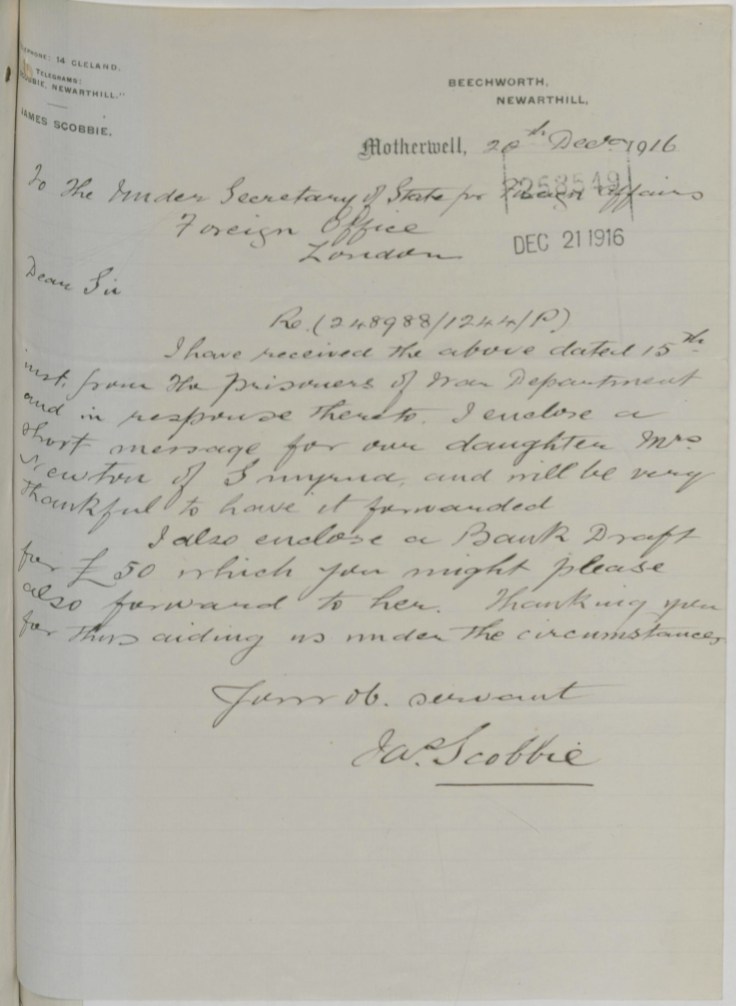 TELEPHONE: 14 CLELAND.
TELEGRAMS:
SCOBBIE, NEWARTHILL."
JAMES SCOBBIE.
BEECHWORTH,
NEWARTHILL,
Motherwell, 20th Decr 1916
258549
DEC 21 1916
To The Under Secretary of State for Foreign Affairs
Foreign Office
London
Dear Sir
Re. (248988/1244/P)
I have received the above dated 15th
inst. from the Prisoners of War Department
and in response thereto. I enclose a
short message for our daughter Mrs
Newton of Smyrna, and will be very
thankful to have it forwarded
I also enclose a Bank Draft
for £50 which you might please
also forward to her. Thanking you
for thus aiding us under the circumstances
Your ob. servant
Jas. Scobbie